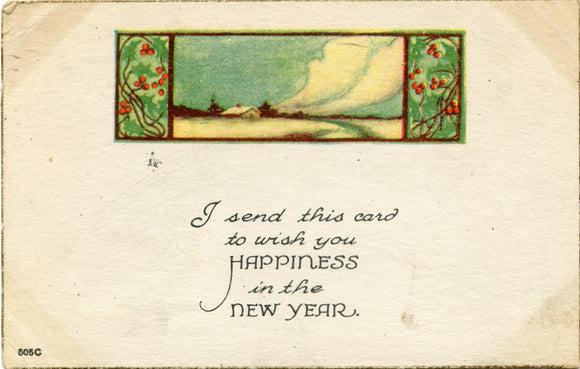 I send this card
to wish you
HAPPINESS
in the
NEW YEAR.
505C